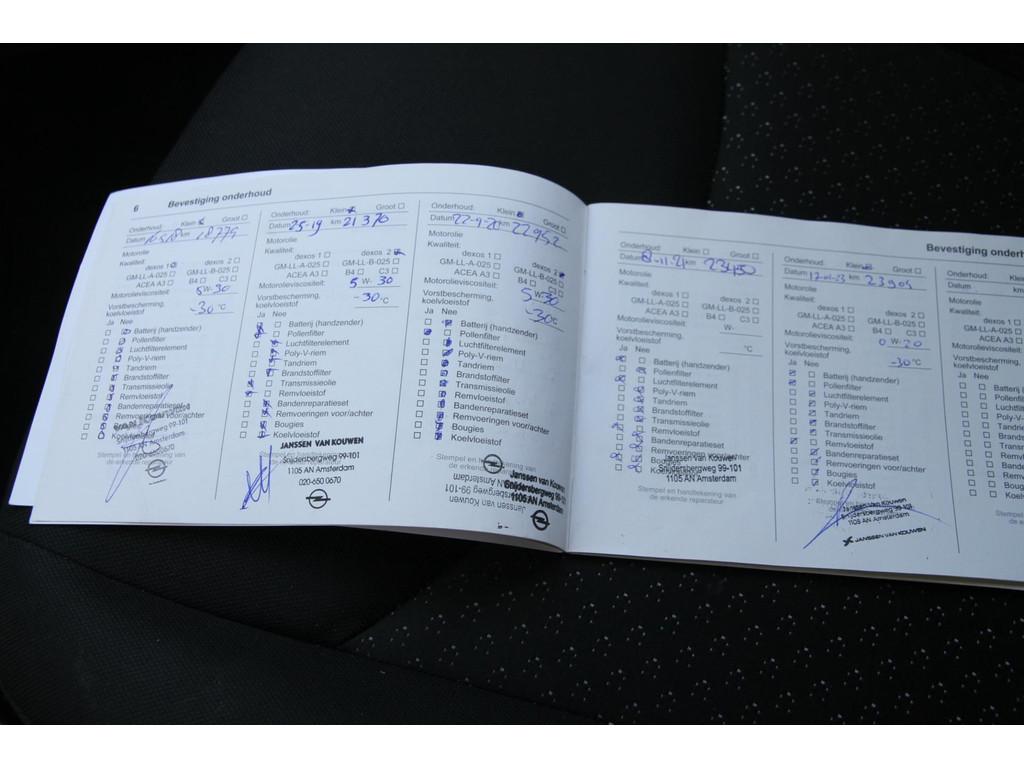 6 Bevestiging onderhoud
Onderhoud: Klein Groot
Datum km 18779
Motorolie
Kwaliteit:
dexos 1 dexos 2
GM-LL-A-025 GM-LL-B-025
ACEA A3 B4 C3
Motorolieviscositeit: 5 W-30
Vorstbescherming, koelvloeistof -30 °C
Ja Nee
Batterij (handzender)
Pollenfilter
Luchtfilterelement
Poly-V-riem
Tandriem
Brandstoffilter
Transmissieolie
Remvloeistof
Bandenreparatieset
Remvoeringen voor/achter
Onderhoud: Klein Groot
Datum 25-19 km 21370
Motorolie
Kwaliteit:
dexos 1 dexos 2
GM-LL-A-025 GM-LL-B-025
ACEA A3 B4 C3
Motorolieviscositeit: 5 W-30
Vorstbescherming, koelvloeistof -30 °C
Ja Nee
Batterij (handzender)
Pollenfilter
Luchtfilterelement
Poly-V-riem
Tandriem
Brandstoffilter
Transmissieolie
Remvloeistof
Bandenreparatieset
Remvoeringen voor/achter
Bougies
Koelvloeistof
JANSSEN VAN KOUWEN
Snijdersbergweg 99-101
1105 AN Amsterdam
020-650 0670
Onderhoud: Klein Groot
Datum 22-9-20 km 22952
Motorolie
Kwaliteit:
dexos 1 dexos 2
GM-LL-A-025 GM-LL-B-025
ACEA A3 B4 C3
Motorolieviscositeit: 5 W-30
Vorstbescherming, koelvloeistof -30 °C
Ja Nee
Batterij (handzender)
Pollenfilter
Luchtfilterelement
Poly-V-riem
Tandriem
Brandstoffilter
Transmissieolie
Remvloeistof
Bandenreparatieset
Remvoeringen voor/achter
Bougies
Koelvloeistof
Stempel en handtekening van
de erkende reparateur
Janssen van Kouwen
Snijdersbergweg 99-101
1105 AN Amsterdam
Bevestiging onderh
Onderhoud: Klein Groot
Datum 8-11-21 km 23450
Motorolie
Kwaliteit:
dexos 1 dexos 2
GM-LL-A-025 GM-LL-B-025
ACEA A3 B4 C3
Motorolieviscositeit: W-
Vorstbescherming, koelvloeistof °C
Ja Nee
Batterij (handzender)
Pollenfilter
Luchtfilterelement
Poly-V-riem
Tandriem
Brandstoffilter
Transmissieolie
Remvloeistof
Bandenreparatieset
Janssen van Kouwen
Snijdersbergweg 99-101
1105 AN Amsterdam
Stempel en handtekening van
de erkende reparateur
Onderhoud: Klein Groot
Datum km 23909
Motorolie
Kwaliteit:
dexos 1 dexos 2
GM-LL-A-025 GM-LL-B-025
ACEA A3 B4 C3
Motorolieviscositeit: 0 W-20
Vorstbescherming, koelvloeistof -30 °C
Ja Nee
Batterij (handzender)
Pollenfilter
Luchtfilterelement
Poly-V-riem
Tandriem
Brandstoffilter
Transmissieolie
Remvloeistof
Bandenreparatieset
Remvoeringen voor/achter
Bougies
Koelvloeistof
Janssen van Kouwen
Snijdersbergweg 99-101
1105 AN Amsterdam
JANSSEN VAN KOUWEN
Onderhoud:
Datum
Motorolie
Kwaliteit:
dexos 1
GM-LL-A-025
ACEA A3
Ja Nee